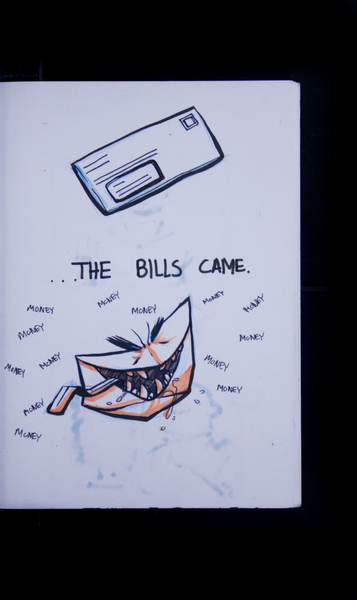 ...THE BILLS CAME.
MONEY
MONEY
MONEY
MONEY
MONEY
MONEY
MONEY
MONEY
MONEY
MONEY
MONEY
MONEY
MONEY